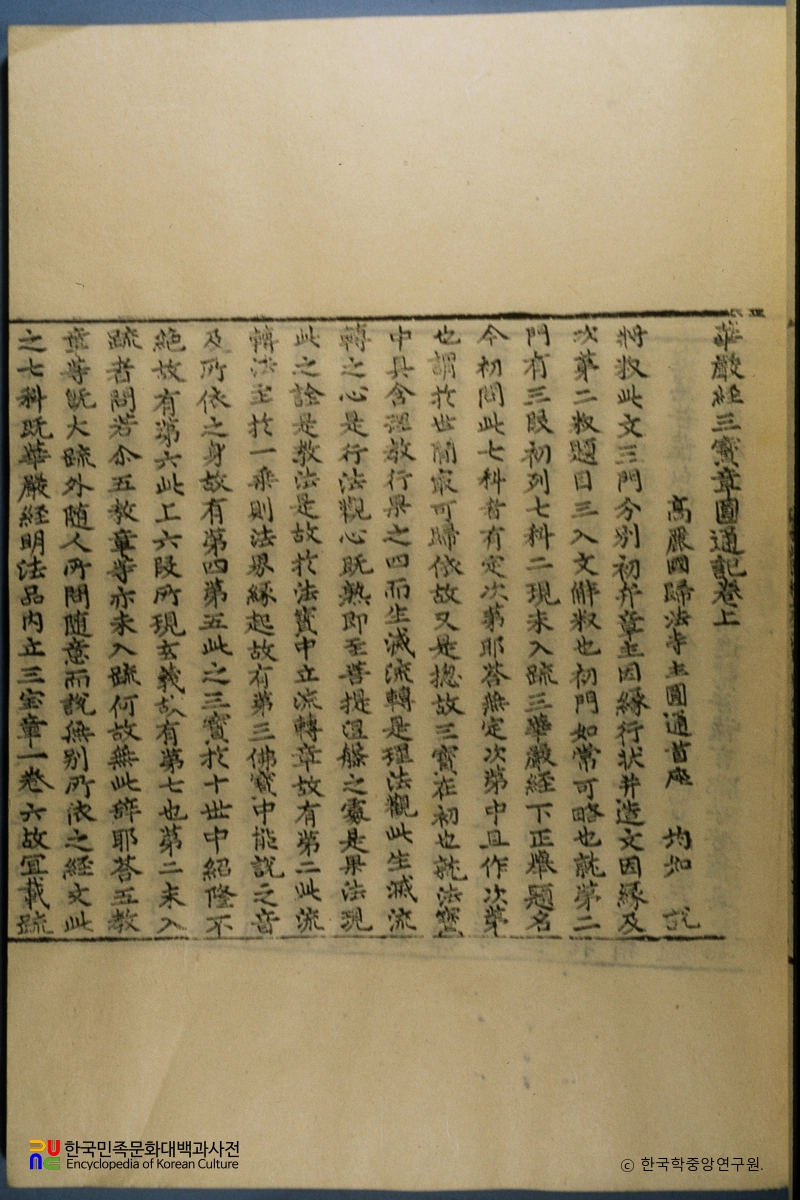 華嚴經三寶章圓通記卷上
高麗國歸法寺主圓通首座 均如 說
將釈此文三門分別初弁章主因縁行状并造文因縁及
次第二釈題目三入文觧釈也初門如常可略也就第二
門有三段初列七科二現未入䟽三華嚴經下正擧題名
今初問此七科者有定次第耶荅無定次第中且作次第
也謂於世間最可歸依故又是揔故三寶在初也就法寶
中具含理教行果之四而生滅流轉是理法觀此生滅流
轉之心是行法觀心既熟即至菩提涅槃之處是果法現
此之詮是教法是故於法寶中立流轉章故有第二此流
轉法至於一乗則法界縁起故有第三佛寶中能說之音
及所依之身故有第四第五此之三寶於十世中紹隆不
絶故有第六此上六段所現玄義故有第七也第二未入
䟽者問若尒五教章等亦未入䟽何故無此辞耶荅五教
章等既大䟽外随人所問随意而說無別所依之經文此
之七科既華嚴經明法品内立三宝章一卷六故冝載䟽
한국민족문화대백과사전
Encyclopedia of Korean Culture
© 한국학중앙연구원.